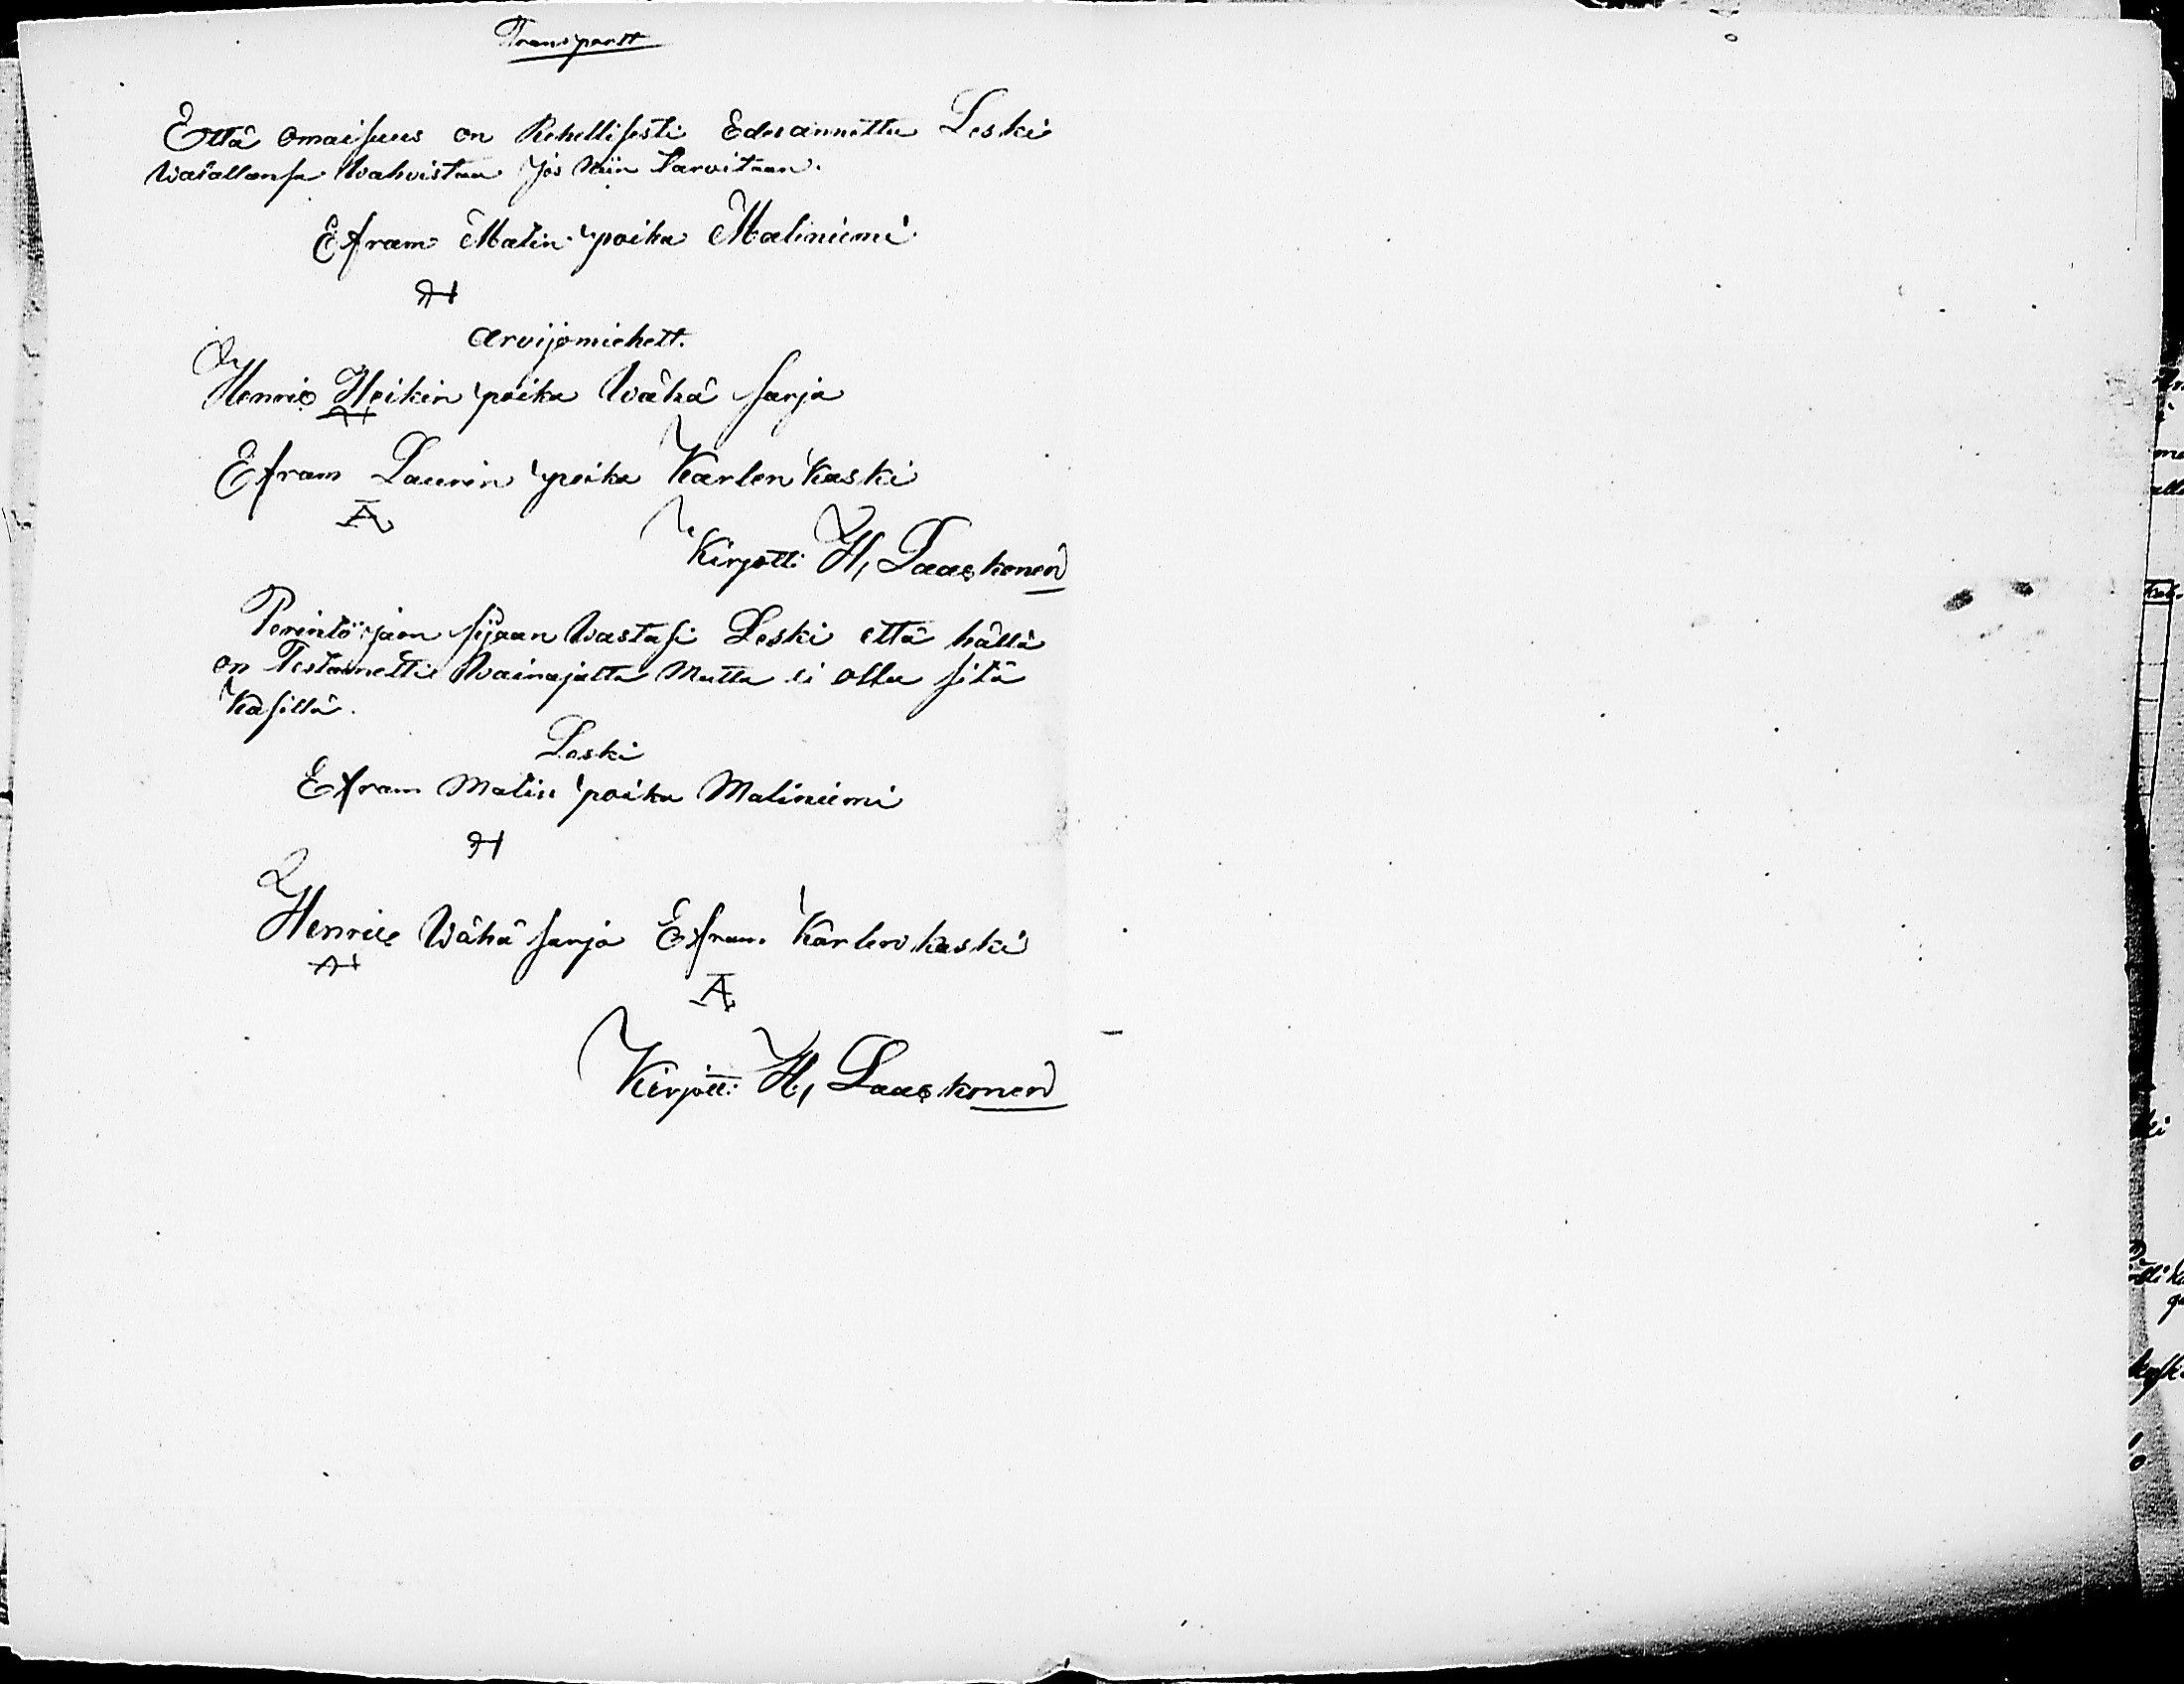 Transportt
Että omaisuus on Rehellisesti Edesannettu Leski
walallansa wahvistaa Jos Niin tarvitaan.
Efram Matin poika Maliniemi
H
arvijomiehett.
Henric Heikin poika Wähä sarja
H
Efram Laurin poika Karlenkaski
A
Kirjotti H, Laaskonen
Perintö jaon sijaan Wastasi Leski että hällä
on Testametti Wainajalta Mutta ei ollu sitä
Käsillä.
Leski
Efram Matin poika Maliniemi
H
Henric Wähä sarja Efram Karlenkaski
H
A
Kirjotti H, Laaskonen